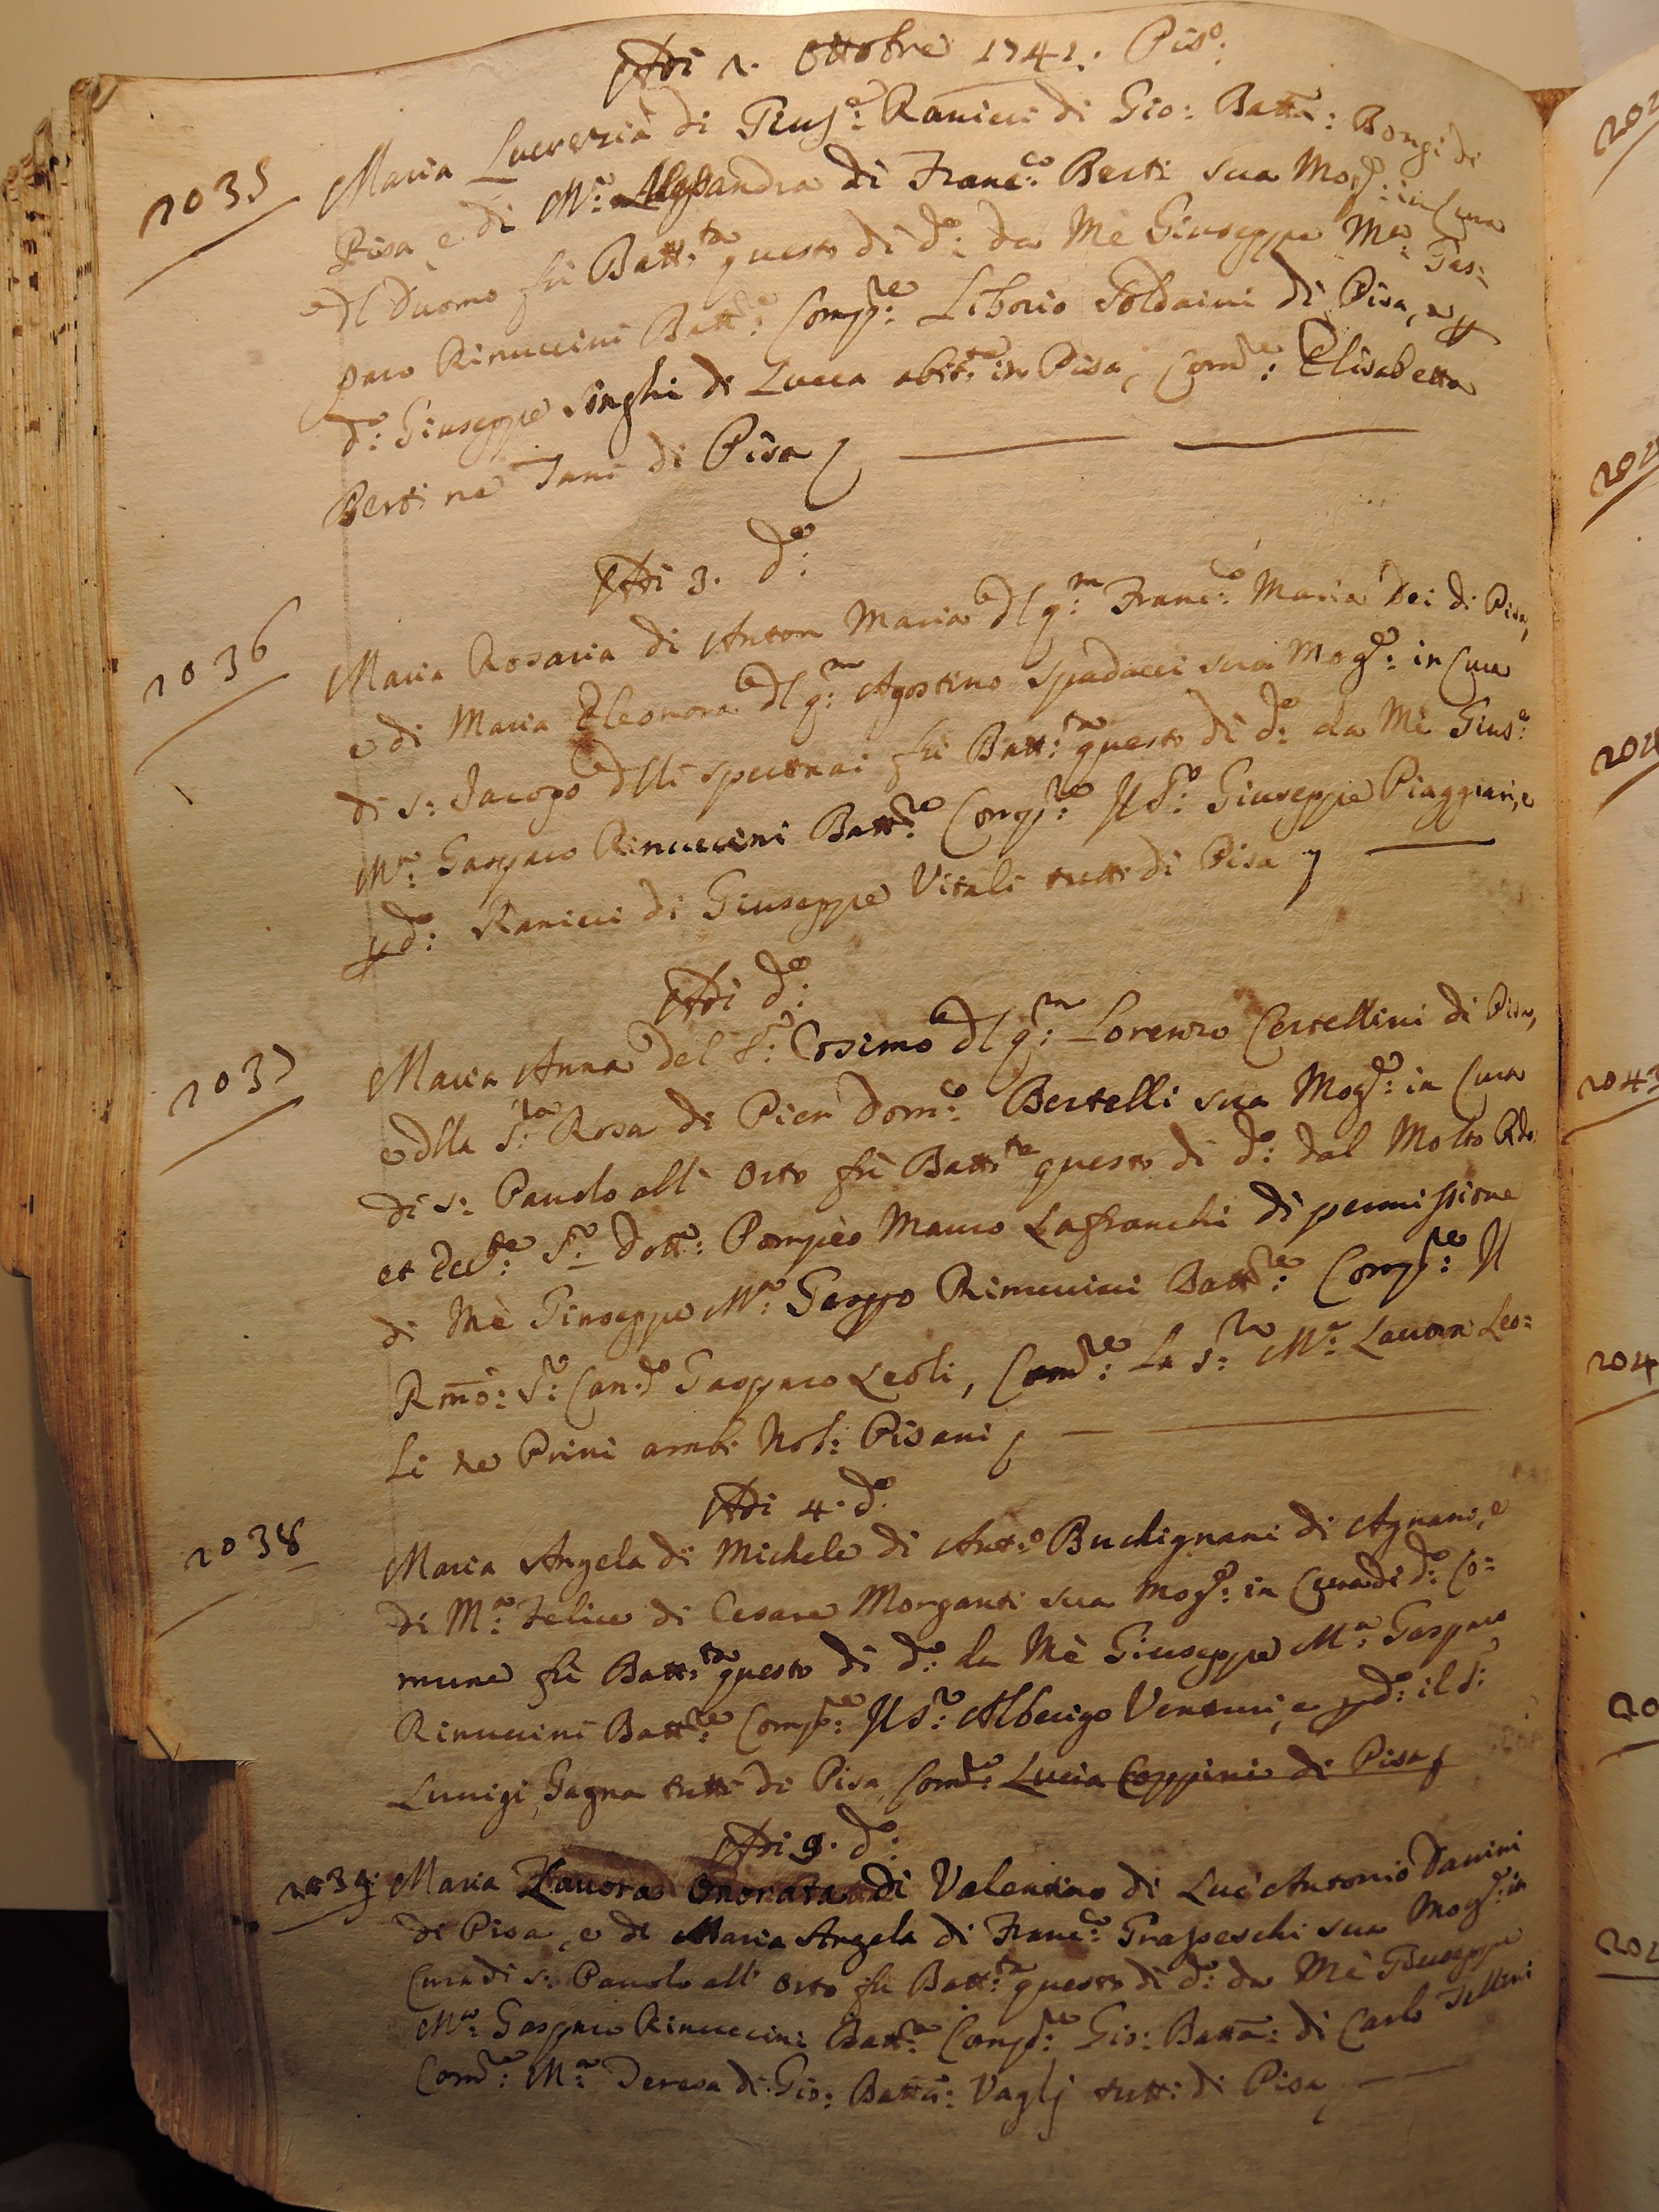 Adi 2. Ottobre 1741. Pis:º
2035
Maria Lucrezia di Gius:e Ranieri di Gio: Batta: Bongi di
Pisa, e di M:a Alessandra di Franc:co Berti sua Mog:e in Cura
del Duomo fù Batt:ta questo dì d:o da Mè Giuseppe M:a Gas:
paro Rinuccini Batt:re Comp:re Liborio Soldaini di Pisa, e p
d:o Giuseppe Singhi di Lucca abit:te in Pisa, Com:re Elisabetta
Berti ne Tani di Pisa
Adi 3. d:o
2036
Maria Rosaria di Anton Maria del q:m Franc:co Maria Dei di Pisa,
e di Maria Eleonora del q:m Agostino Spadacci sua Mog:e in Cura
di S: Jacopo delli Speronai fù Batt:ta questo dì d:o da Mè Gius:e
M:a Gasparo Rinuccini Batt:re Comp:re Il S:r Giuseppe Piaggiari, e
p d:o Ranieri di Giuseppe Vitali tutti di Pisa
Adi d:o
2037
Maria Anna del S:r Cosimo del q:m Lorenzo Certellini di Pisa,
e della S:ra Rosa di Pier Dom:co Bertelli sua Mog:e in Cura
di S: Pauolo all' Orto fù Batt:ta questo dì d:o dal Molto Rdo:
et Ecc:te S:r Dott:e Pompèo Mauro Lafranchi di permissione
di Mè Giuseppe M:a Gasppo Rinuccini Batt:re Comp:re Il
Rmo: S:r Can:co Gasparo Leoli, Com:re La S:ra M:a Laura Leo:
li ne Prini ambi Nob: Pisani
Adi 4. d:o
2038
Maria Angela di Michele di Ant:o Buchignani di Agnano, e
di M:a Felice di Cesare Morganti sua Mog:e in Cura di d:o Co:
mune fù Batt:ta questo dì d:o da Mè Giuseppe M:a Gasparo
Rinuccini Batt:re Comp:re Il S:r Alberigo Venturi, e p d:o il S:
Luuigi Gagna tutti di Pisa Com:re Lucia Coppini di Pisa
Adi 9. d:o
2039
Maria Onorata di Valentino di Luc' Antonio Danini
di Pisa, e di Maria Angela di Franc:co Grasseschi sua Mog:e in
Cura di S: Pauolo all' Orto fù Batt:ta questo dì d:o da Mè Giuseppe
M:a Gasparo Rinuccini Batt:re Comp:re Gio: Batta: di Carlo Tellini
Com:re M:a Teresa di Gio: Batta: Vaglj tutti di Pisa
2043